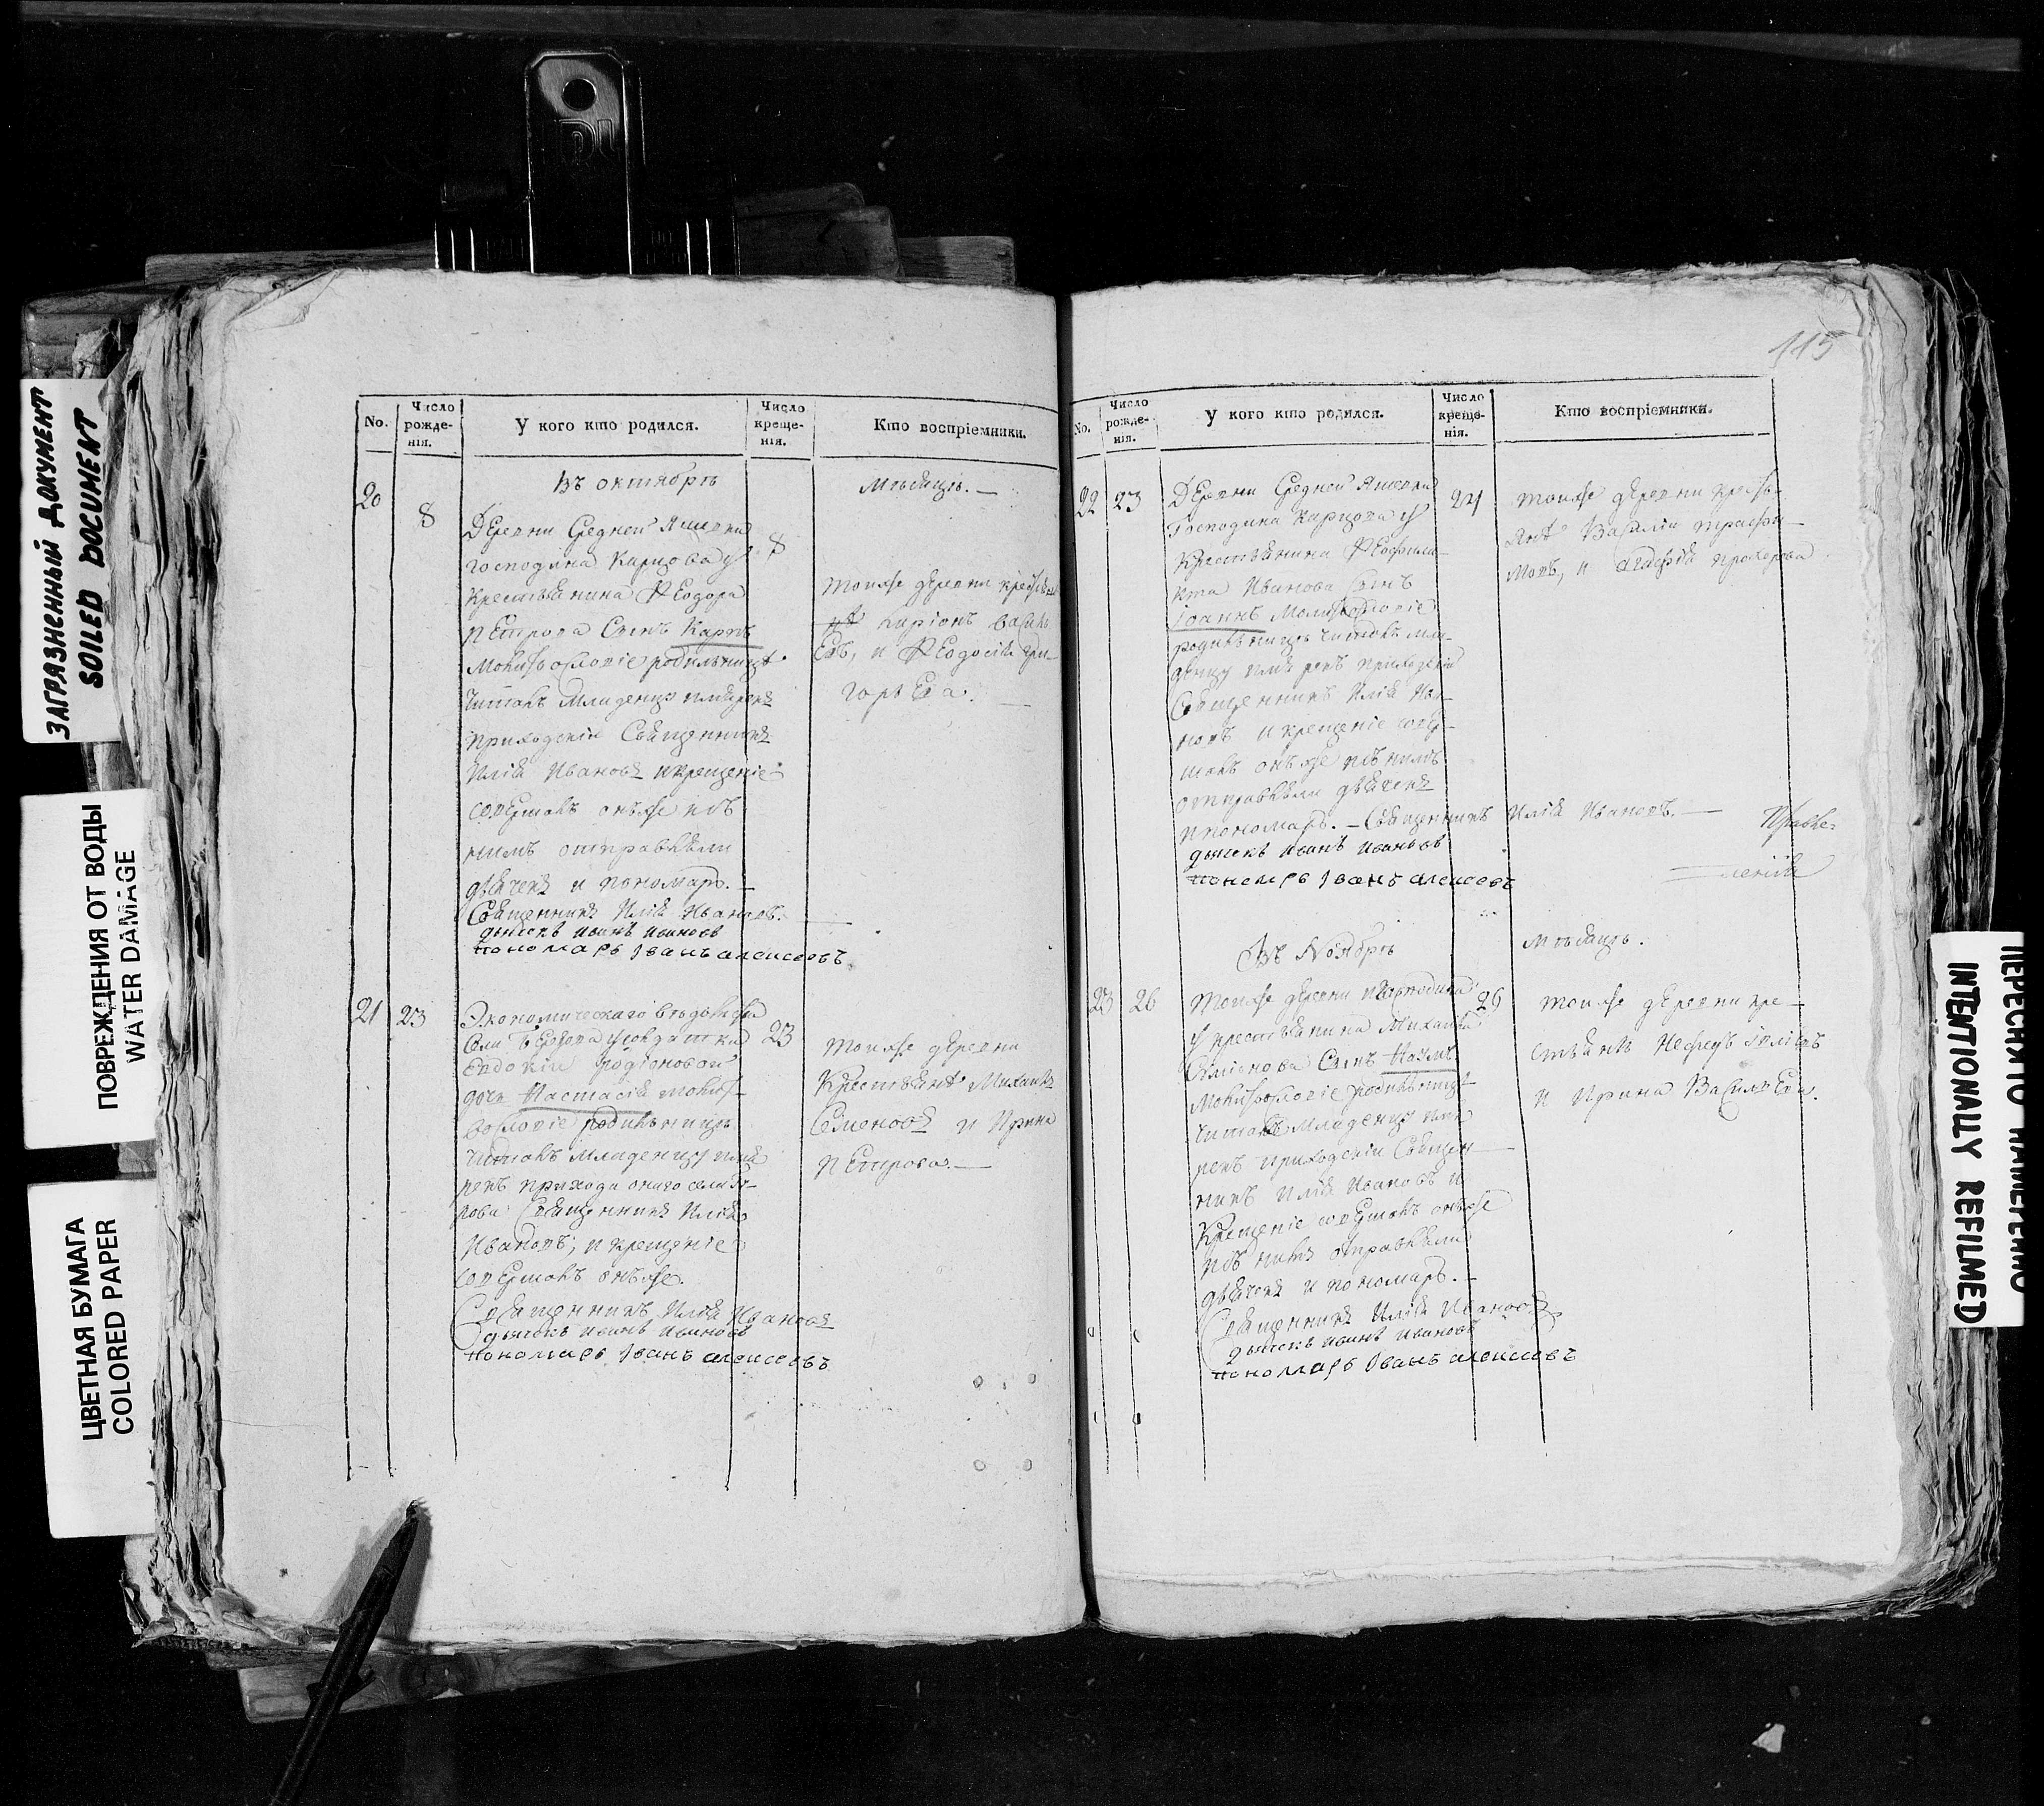 ЗАГРЯЗНЕННЫЙ ДОКУМЕНТ
SOILED DOCUMENT
ПОВРЕЖДЕНИЯ ОТ ВОДЫ
WATER DAMAGE
ЦВЕТНАЯ БУМАГА
COLORED PAPER
No.
Число рожде-нія.
У кого кто родился.
Число креще-нія.
Кто воспріемники.
Въ октябрѣ
мѣсяцѣ. —
20
8
Деревни Средней
господина Карцова у
8
крестьянина Ѳеодора
Петрова Сынъ Карпъ
родильницѣ
Читалъ Младенцу имя рекъ
приходскій Священникъ
Илія Ивановъ и крещеніе
совершалъ онъ же при
нимъ отправляли
дьячекъ и пономарь. —
Священникъ Илія Ивановъ. —
дьячекъ иванъ ивановъ
пономарь Iванъ алексеевъ
тоя же деревни
Киріонъ
и Ѳеодосія Гри-
горьева.
21
23
Экономическаго вѣдомства
Села
Евдокіи родіоновой
дочь Настасія
23
родильницѣ
Читалъ Младенцу имя
рекъ прихода онаго села
Священникъ Илія
Ивановъ, и крещеніе
совершалъ онъ же.
Священникъ Илія Ивановъ
дьячекъ иванъ ивановъ
пономарь Iванъ алексеевъ
тоя же деревни
Крестьянъ Михаилъ
Семеновъ и Ирина
Петрова. —
115
No.
Число рожде-нія.
У кого кто родился.
Число креще-нія.
Кто воспріемники.
22
23
Деревни Средней
Господина Карцова у
24
Крестьянина Ѳеофила-
кта Иванова Сынъ
Iоаннъ
родильницѣ читалъ мла-
денцу имя рекъ приходскій
Священникъ Илія Ива-
новъ и крещеніе совер-
шалъ онъ же
отправляли дьячекъ
и пономарь. — Священникъ Илія Ивановъ. —
дьячекъ иванъ ивановъ
пономарь Iванъ алексеевъ
тоя же деревни
Василій трофи-
мовъ, и Агафія прохорова
Въ Ноябрѣ
мѣсяцѣ.
23
26
Тоя же деревни и господина
26
у крестьянина Михаила
Сынъ Наумъ
родильницѣ
читалъ Младенцу имя
рекъ приходскій Священ-
никъ Илія Ивановъ и
Крещеніе совершалъ онъ же
отправляли
дьячекъ и пономарь. —
Священникъ Илія Ивановъ
дьячекъ иванъ ивановъ
пономарь Iванъ алексеевъ
тоя же деревни кре-
и Ирина Васильева.
ПЕРЕСНЯТО НАМЕРЕННО
INTENTIONALLY REFILMED